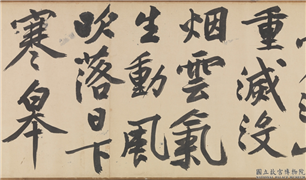 重滅沒
烟雲氣
生動風
吹落日下
寒皋
國立故宮博物院